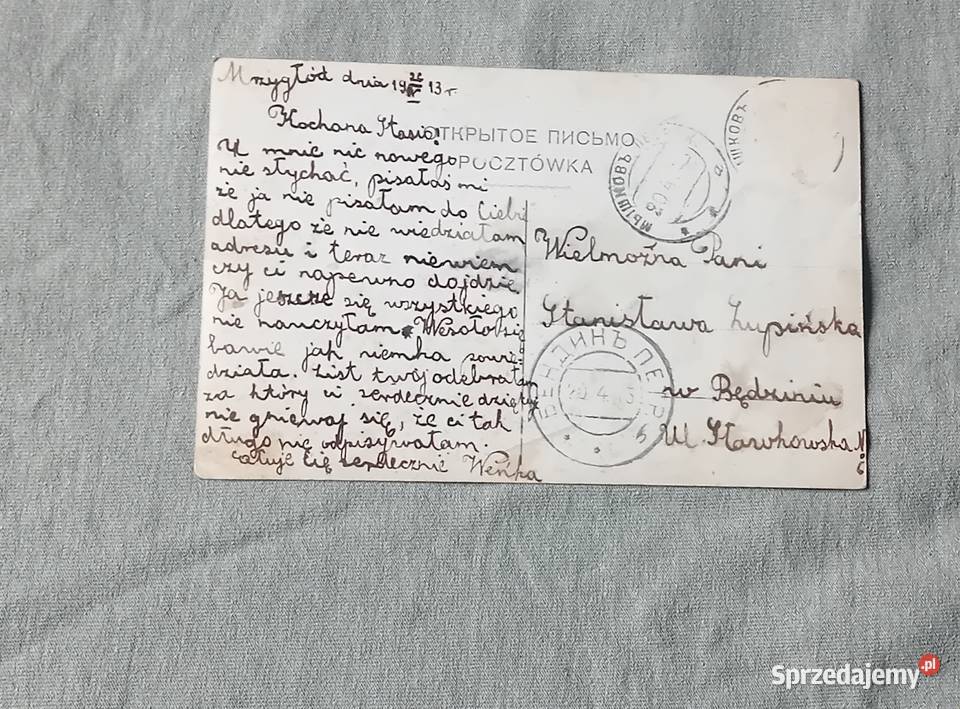 Mrzygłód dnia 19 26/IV 13 r
Kochana Stasio!
U mnie nic nowego
nie słychać, pisałaś mi
że ja nie pisałam do Ciebie
dlatego że nie wiedziałam
adresu i teraz niewiem
czy ci napewno dojdzie
Ja jeszcze się wszystkiego
nie nauczyłam. Wesoło się
bawie jak niemka
działa. List twój odebrałam
za który ci serdecznie dziękuje
nie gniewaj się, że ci tak
długo nie odpisywałam.
całuje cię serdecznie Weńka
ОТКРЫТОЕ ПИСЬМО
POCZTÓWKA
МЫШКОВЪ
ШКОВЪ
Wielmożna Pani
Stanisława Żupińska
w Będziniu
Ul. Sławkowska N 6
БЕНДИНЪ ПЕТР
Sprzedajemy.pl